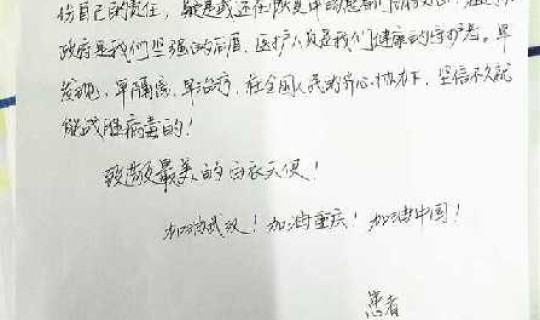 份自己的责任,疑是或还在恢复中的患者们请放心,
政府是我们坚强的后盾,医护人员是我们健康的守护者。早
发现、早隔离、早治疗,在全国人民的齐心协力下,坚信不久就
能战胜病毒的!
致敬最美的白衣天使!
加油武汉!加油重庆!加油中国!
患者